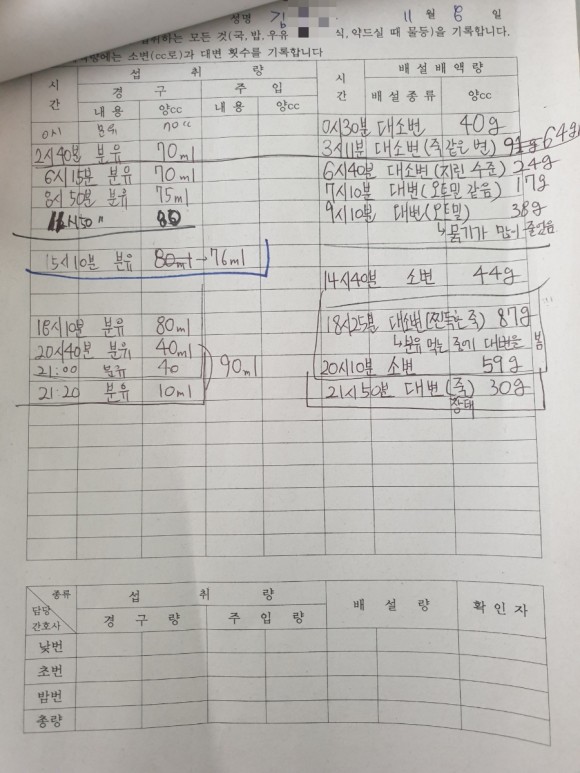 성명 김 11 월 8 일
취하는 모든 것(국, 밥, 우유 식, 약드실 때 물등)을 기록합니다.
에는 소변(cc로)과 대변 횟수를 기록합니다
시간 섭취량 시간 배설배액량
경구 주입 배설종류 양cc
내용 양cc 내용 양cc
분유 70cc 0시30분 대소변 40g
2시40분 분유 70ml 3시11분 대소변(죽같은 변) 64g
6시15분 분유 70ml 6시40분 대소변(지린 수준) 24g
8시50분 분유 75ml 7시10분 대변(오트밀 같음) 17g
11시50 〃 80 9시10분 대변(오트밀) 38g
↳물기가 많이 줄었음
15시10분 분유 80ml→76ml
14시40분 소변 44g
18시10분 분유 80ml 18시25분 대소변(찐득한 죽) 87g
20시40분 분유 40ml ↳분유 먹는 중에 대변을 봄
21:00 분유 40 90ml 20시10분 소변 59g
21:20 분유 10ml 21시50분 대변(죽) 30g
상태
종류 섭취량 배설량 확인자
담당 간호사 경구량 주입량
낮번
초번
밤번
총량